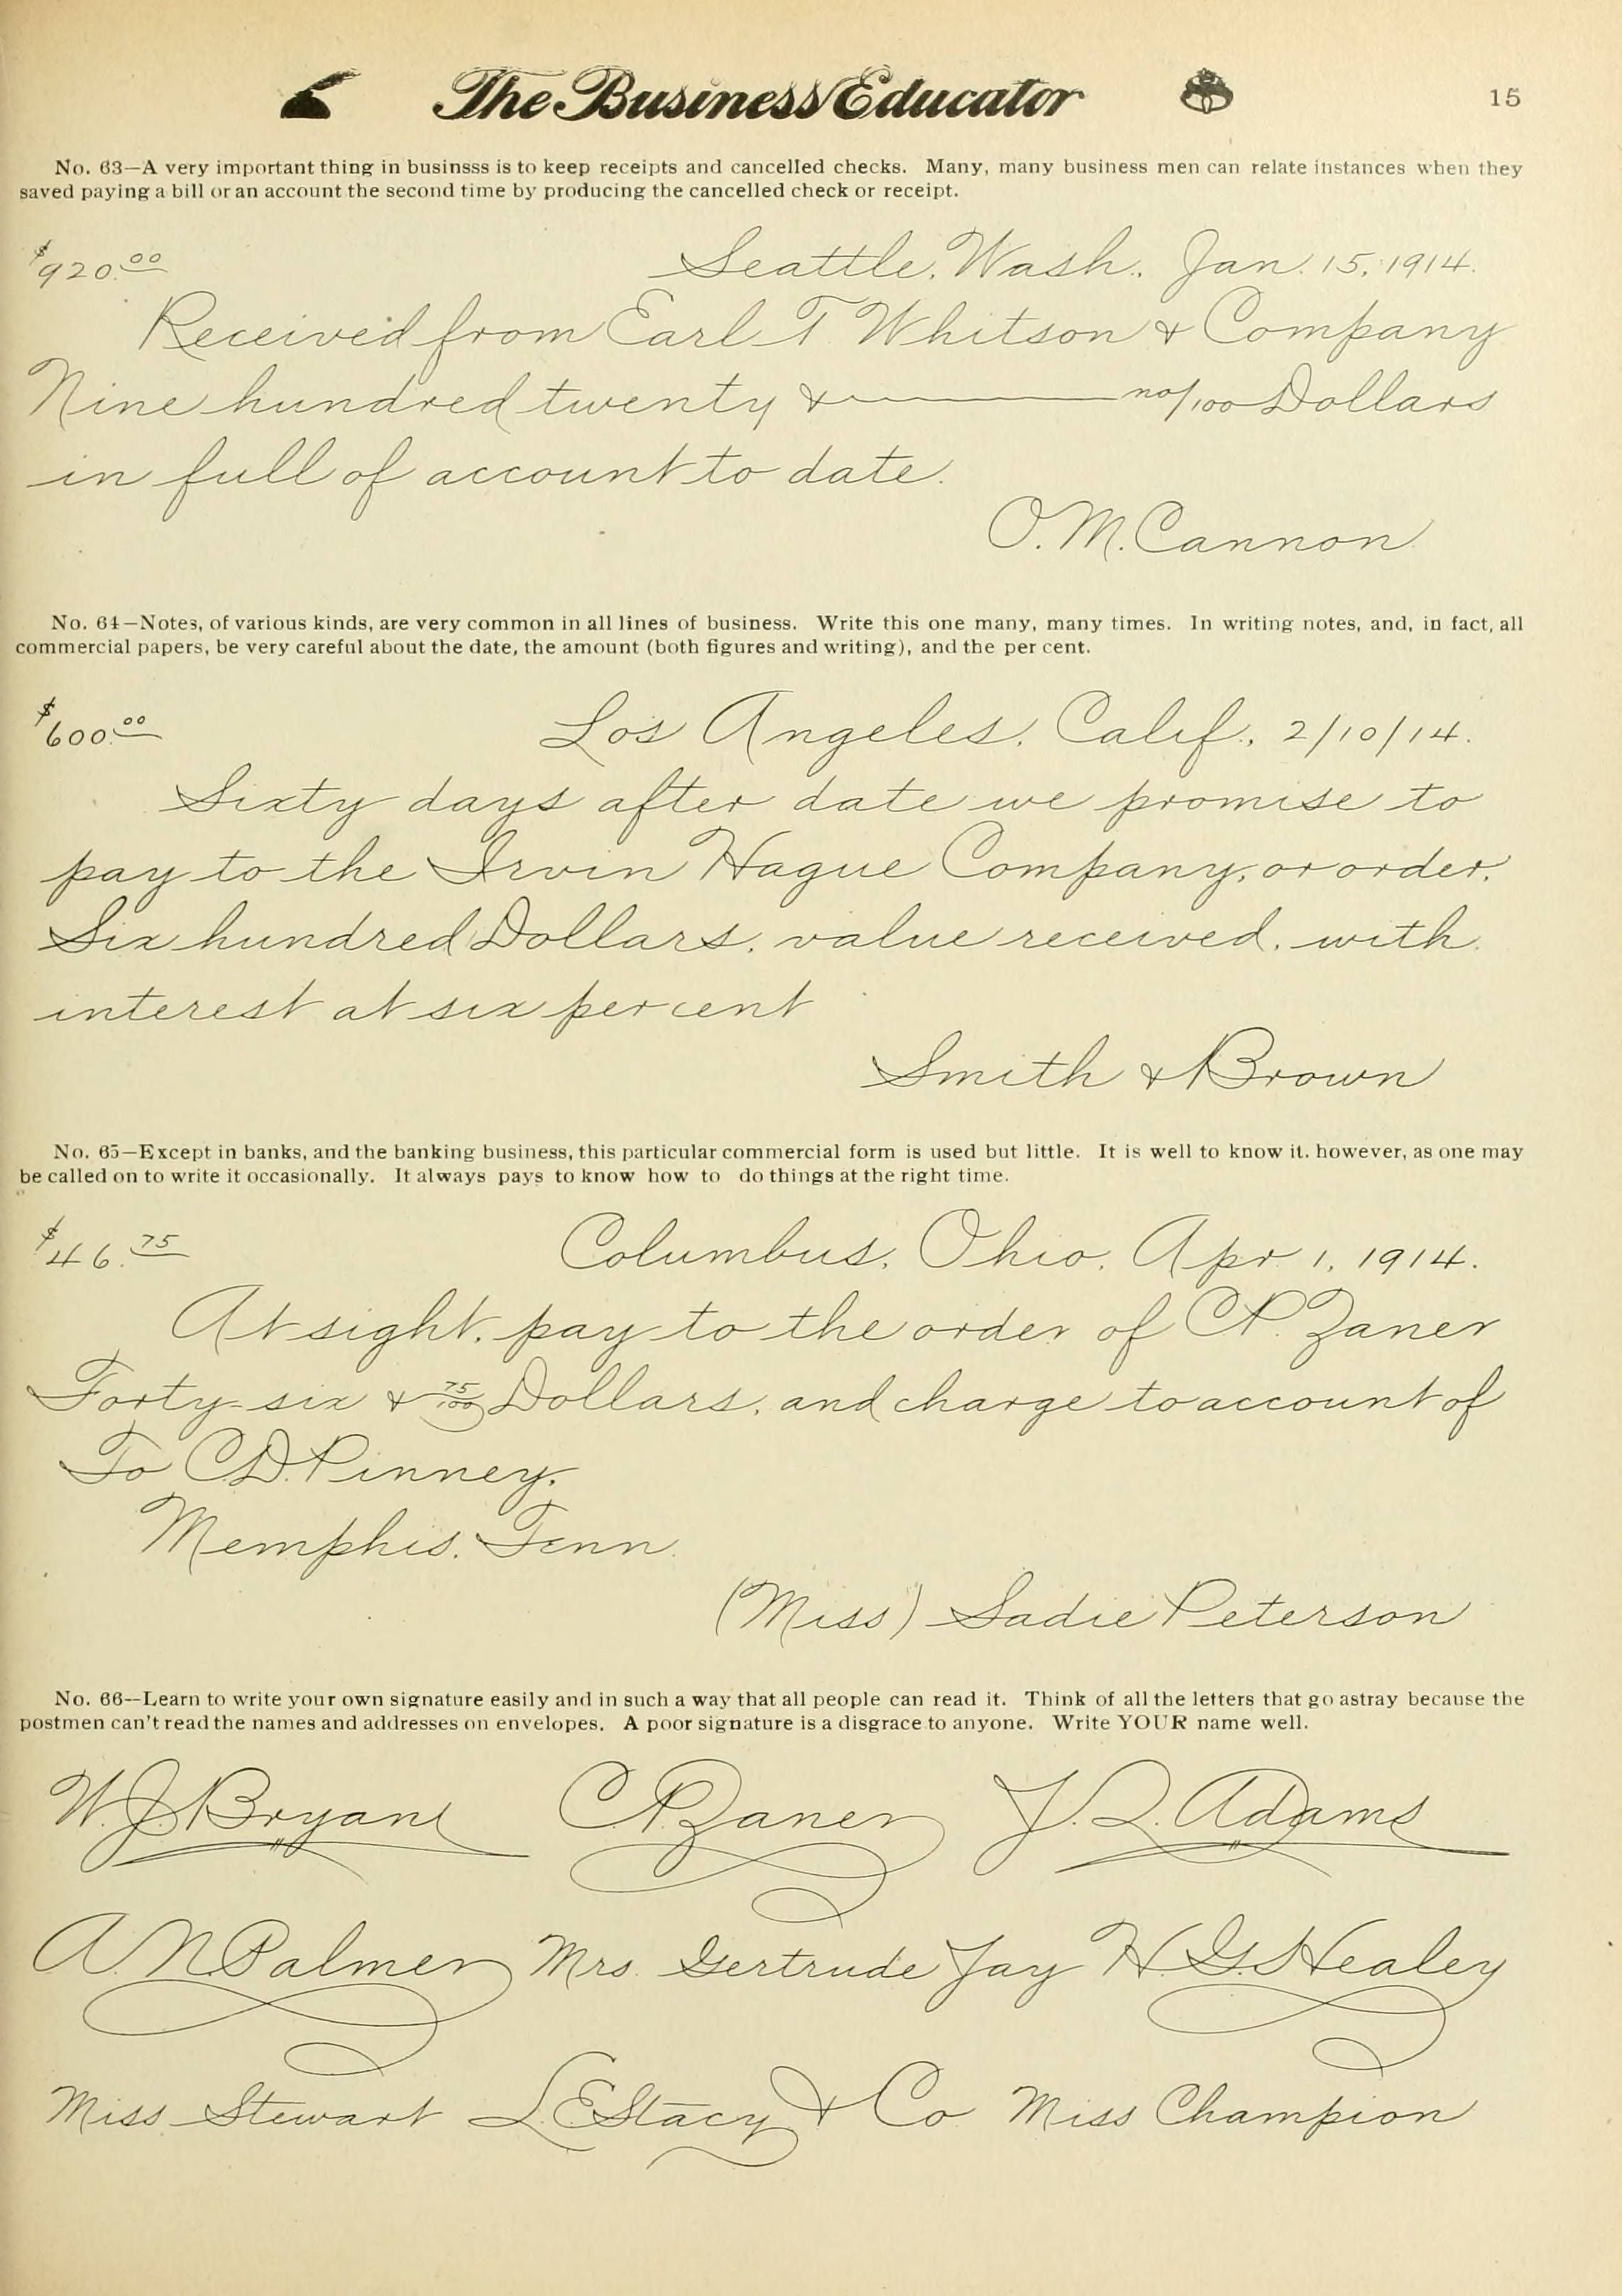 The Business Educator
15
No. 63—A very important thing in businsss is to keep receipts and cancelled checks. Many, many business men can relate instances when they
saved paying a bill or an account the second time by producing the cancelled check or receipt.
$920.00 Seattle, Wash., Jan. 15, 1914.
Received from Earl T. Whitson & Company
Nine hundred twenty & no/100 Dollars
in full of account to date.
O. M. Cannon
No. 64—Notes, of various kinds, are very common in all lines of business. Write this one many, many times. In writing notes, and, in fact, all
commercial papers, be very careful about the date, the amount (both figures and writing), and the per cent.
$600.00 Los Angeles, Calif., 2/10/14.
Sixty days after date we promise to
pay to the Irvin Hague Company, or order,
Six hundred Dollars, value received, with
interest at six per cent
Smith & Brown
No. 65—Except in banks, and the banking business, this particular commercial form is used but little. It is well to know it. however, as one may
be called on to write it occasionally. It always pays to know how to do things at the right time.
$46.75 Columbus, Ohio, Apr 1, 1914.
At sight, pay to the order of C.P. Zaner
Forty-six & 75/100 Dollars, and charge to account of
To C.D. Pinney,
Memphis, Tenn.
(Miss) Sadie Peterson
No. 66--Learn to write your own signature easily and in such a way that all people can read it. Think of all the letters that go astray because the
postmen can't read the names and addresses on envelopes. A poor signature is a disgrace to anyone. Write YOUR name well.
W. J. Bryant C.P. Zaner J. Q. Adams
A. N. Palmer Mrs. Gertrude Jay H. G. Healey
Miss Stewart L. E. Stacy & Co Miss Champion